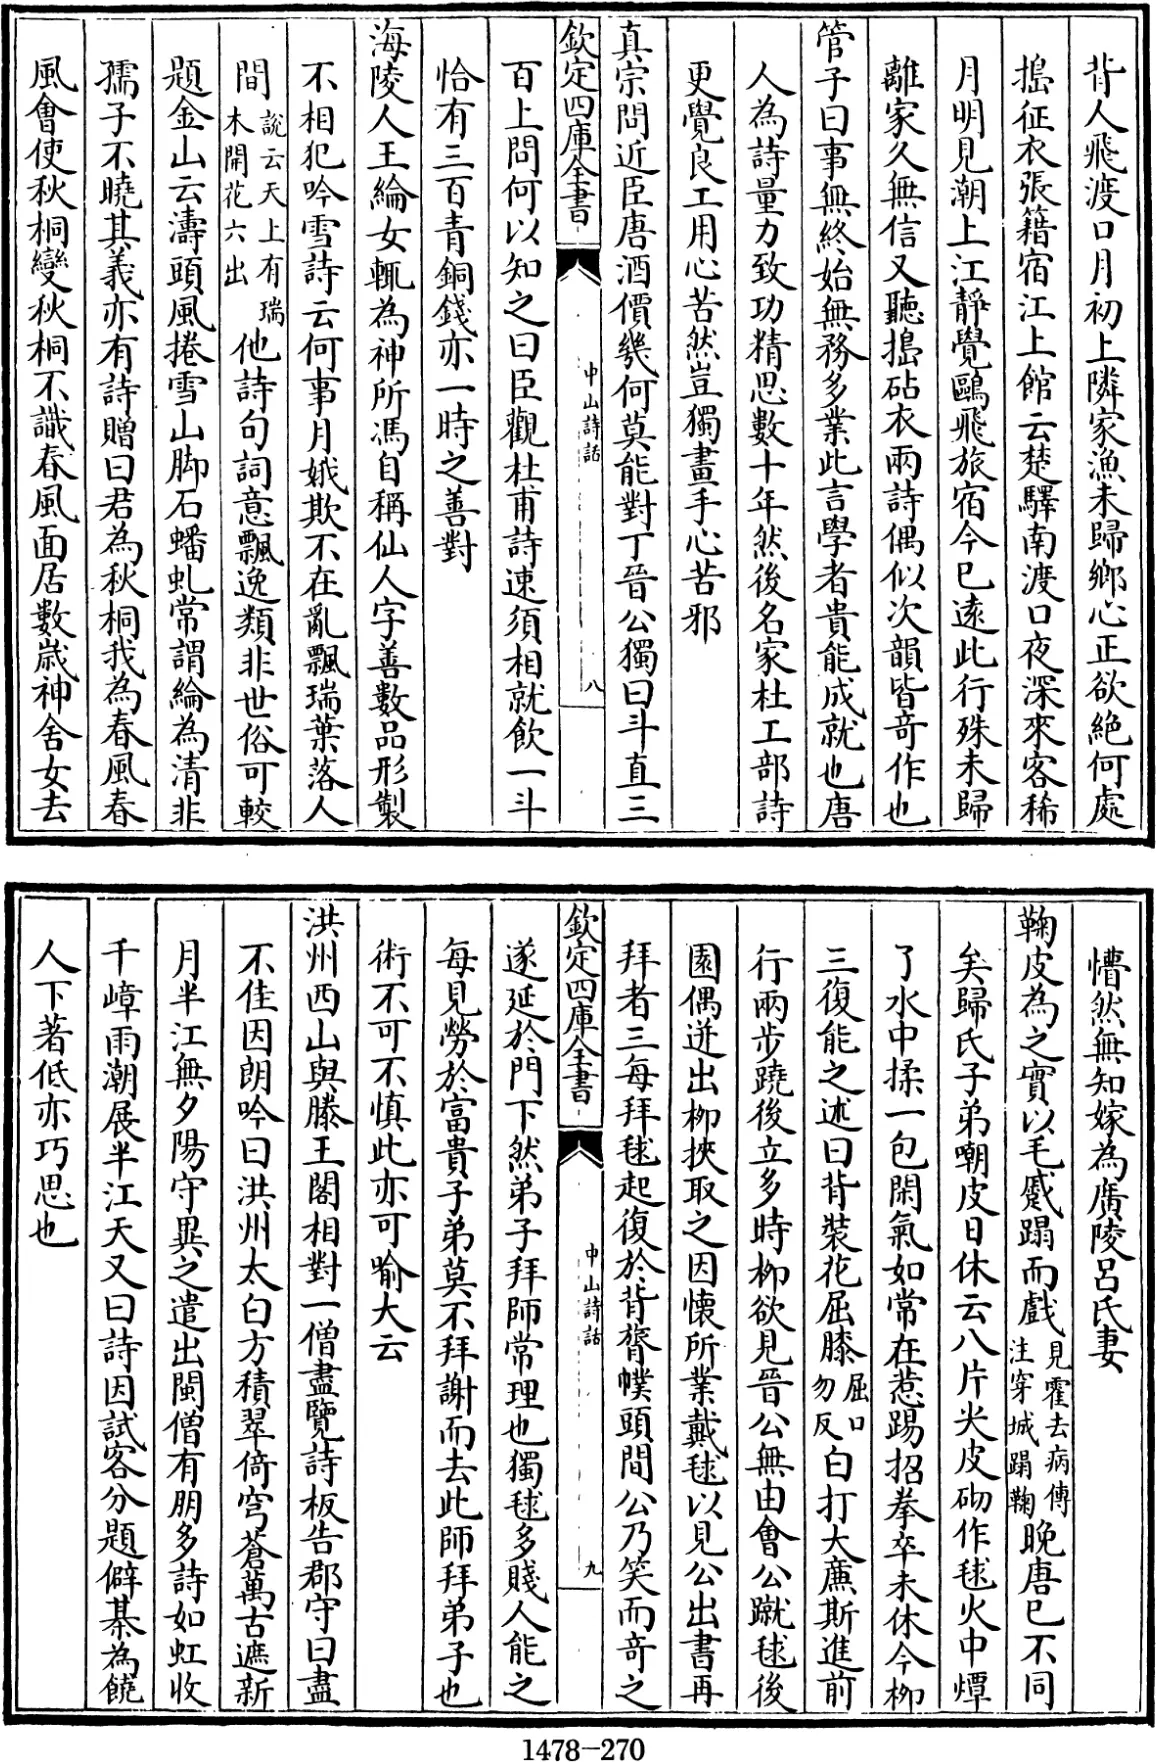 背人飛渡口月初上隣家漁未歸鄉心正欲絶何處
搗征衣張籍宿江上館云楚驛南渡口夜深來客稀
月明見潮上江靜覺鷗飛旅宿今已遠此行殊未歸
離家久無信又聽搗砧衣兩詩偶似次韻皆奇作也
管子曰事無終始無務多業此言學者貴能成就也唐
人為詩量力致功精思數十年然後名家杜工部詩
更覺良工用心苦然豈獨畫手心苦邪
真宗問近臣唐酒價幾何莫能對丁晉公獨曰斗直三
欽定四庫全書
中山詩話
八
百上問何以知之曰臣觀杜甫詩速須相就飲一斗
恰有三百青銅錢亦一時之善對
海陵人王綸女輒為神所馮自稱仙人字善數品形製
不相犯吟雪詩云何事月娥欺不在亂飄瑞葉落人
間說云天上有瑞木開花六出他詩句詞意飄逸類非世俗可較
題金山云濤頭風捲雪山脚石蟠虬常謂綸為清非
孺子不曉其義亦有詩贈曰君為秋桐我為春風春
風會使秋桐變秋桐不識春風面居數歲神舍女去
懵然無知嫁為廣陵呂氏妻
鞠皮為之實以毛蹙蹋而戲見霍去病傳注穿城蹋鞠晚唐已不同
矣歸氏子弟嘲皮日休云八片尖皮砌作毬火中燂
了水中揉一包閑氣如常在惹踢招拳卒未休今柳
三復能之述曰背裝花屈膝屈口勿反白打大廉斯進前
行兩步蹺後立多時柳欲見晉公無由會公蹴毬後
園偶迸出柳挾取之因懷所業戴毬以見公出書再
拜者三每拜毬起復於背膂幞頭間公乃笑而奇之
欽定四庫全書
中山詩話
九
遂延於門下然弟子拜師常理也獨毬多賤人能之
每見勞於富貴子弟莫不拜謝而去此師拜弟子也
術不可不慎此亦可喻大云
洪州西山與滕王閣相對一僧盡覽詩板告郡守曰盡
不佳因朗吟曰洪州太白方積翠倚穹蒼萬古遮新
月半江無夕陽守異之遣出閩僧有朋多詩如虹收
千嶂雨潮展半江天又曰詩因試客分題僻棊為饒
人下著低亦巧思也
1478-270